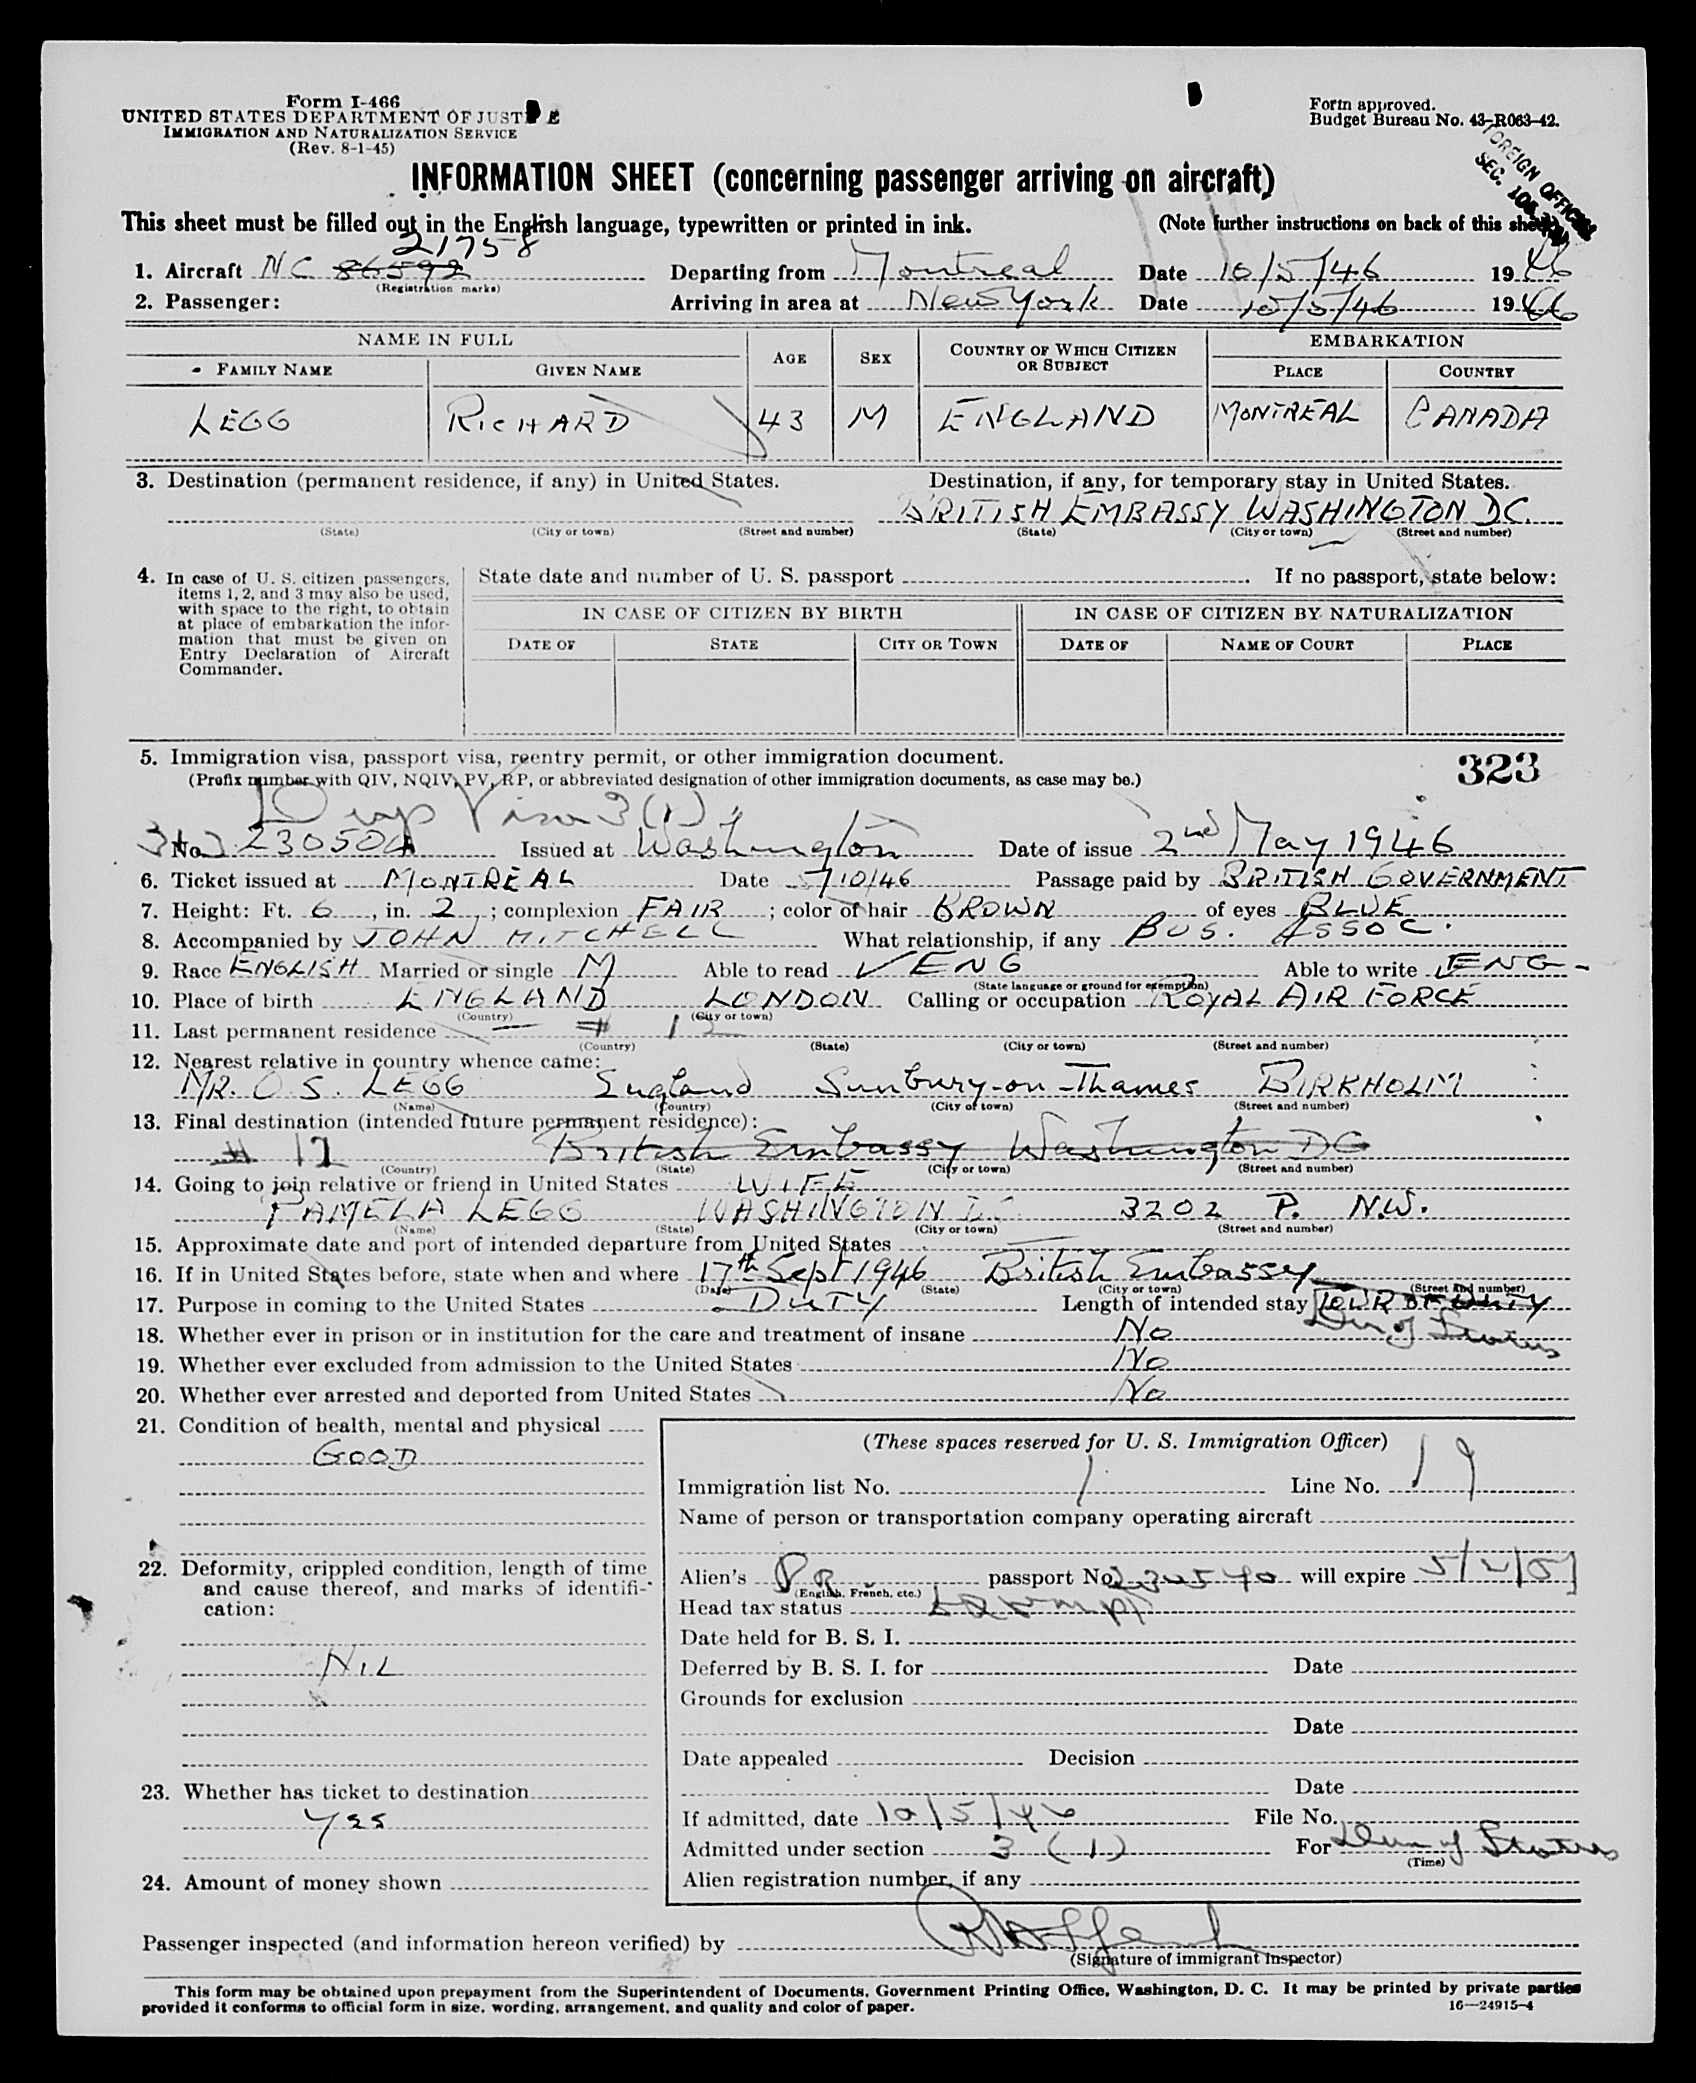 Form I-466
UNITED STATES DEPARTMENT OF JUSTICE
IMMIGRATION AND NATURALIZATION SERVICE
(Rev. 8-1-45)
Form approved.
Budget Bureau No. 43-R063-42.
FOREIGN OFFICIAL
SEC.
INFORMATION SHEET (concerning passenger arriving on aircraft)
This sheet must be filled out in the English language, typewritten or printed in ink. (Note further instructions on back of this sheet)
21758
1. Aircraft NC 86592 Departing from Montreal Date 10/5/46 1946
(Registration marks)
2. Passenger: Arriving in area at New York Date 10/5/46 1946
NAME IN FULL AGE SEX COUNTRY OF WHICH CITIZEN OR SUBJECT EMBARKATION
FAMILY NAME GIVEN NAME PLACE COUNTRY
LEGG RICHARD 43 M ENGLAND MONTREAL CANADA
3. Destination (permanent residence, if any) in United States. Destination, if any, for temporary stay in United States.
BRITISH EMBASSY WASHINGTON DC.
(State) (City or town) (Street and number) (State) (City or town) (Street and number)
4. In case of U. S. citizen passengers, items 1, 2, and 3 may also be used, with space to the right, to obtain at place of embarkation the information that must be given on Entry Declaration of Aircraft Commander.
State date and number of U. S. passport . If no passport, state below:
IN CASE OF CITIZEN BY BIRTH IN CASE OF CITIZEN BY NATURALIZATION
DATE OF STATE CITY OR TOWN DATE OF NAME OF COURT PLACE
5. Immigration visa, passport visa, reentry permit, or other immigration document. 323
(Prefix number with QIV, NQIV, PV, RP, or abbreviated designation of other immigration documents, as case may be.)
Dip Visa 3(1)
No. 230504 Issued at Washington Date of issue 2nd May 1946
6. Ticket issued at MONTREAL Date 5/10/46 Passage paid by BRITISH GOVERNMENT
7. Height: Ft. 6, in. 2; complexion FAIR; color of hair BROWN of eyes BLUE
8. Accompanied by JOHN MITCHELL What relationship, if any BUS. ASSOC.
9. Race ENGLISH Married or single M Able to read ENG Able to write ENG-
(State language or ground for exemption)
10. Place of birth ENGLAND LONDON Calling or occupation ROYAL AIR FORCE
(Country) (City or town)
11. Last permanent residence # 12
(Country) (State) (City or town) (Street and number)
12. Nearest relative in country whence came:
MR. O. S. LEGG England Sunbury-on-Thames BIRKHOLM
(Name) (Country) (City or town) (Street and number)
13. Final destination (intended future permanent residence):
# 12 British Embassy Washington DC
(Country) (State) (City or town) (Street and number)
14. Going to join relative or friend in United States WIFE
PAMELA LEGG WASHINGTON D.C. 3202 P. N.W.
(Name) (State) (City or town) (Street and number)
15. Approximate date and port of intended departure from United States
16. If in United States before, state when and where 17th Sept 1946 British Embassy
(Date) (State) (City or town) (Street and number)
17. Purpose in coming to the United States DUTY Length of intended stay TOUR OF DUTY
Dur of Status
18. Whether ever in prison or in institution for the care and treatment of insane No
19. Whether ever excluded from admission to the United States No
20. Whether ever arrested and deported from United States No
21. Condition of health, mental and physical
GOOD
22. Deformity, crippled condition, length of time and cause thereof, and marks of identification:
NIL
23. Whether has ticket to destination
Yes
24. Amount of money shown
(These spaces reserved for U. S. Immigration Officer)
Immigration list No. 1 Line No. 19
Name of person or transportation company operating aircraft
Alien's passport No. 230540 will expire 5/2/51
(English, French, etc.)
Head tax status Exempt
Date held for B. S. I.
Deferred by B. S. I. for Date
Grounds for exclusion
Date
Date appealed Decision
Date
If admitted, date 10/5/46 File No.
Admitted under section 3 (1) For Dur of Status
(Time)
Alien registration number, if any
Passenger inspected (and information hereon verified) by
(Signature of immigrant inspector)
This form may be obtained upon prepayment from the Superintendent of Documents, Government Printing Office, Washington, D. C. It may be printed by private parties
provided it conforms to official form in size, wording, arrangement, and quality and color of paper. 16—24915-4